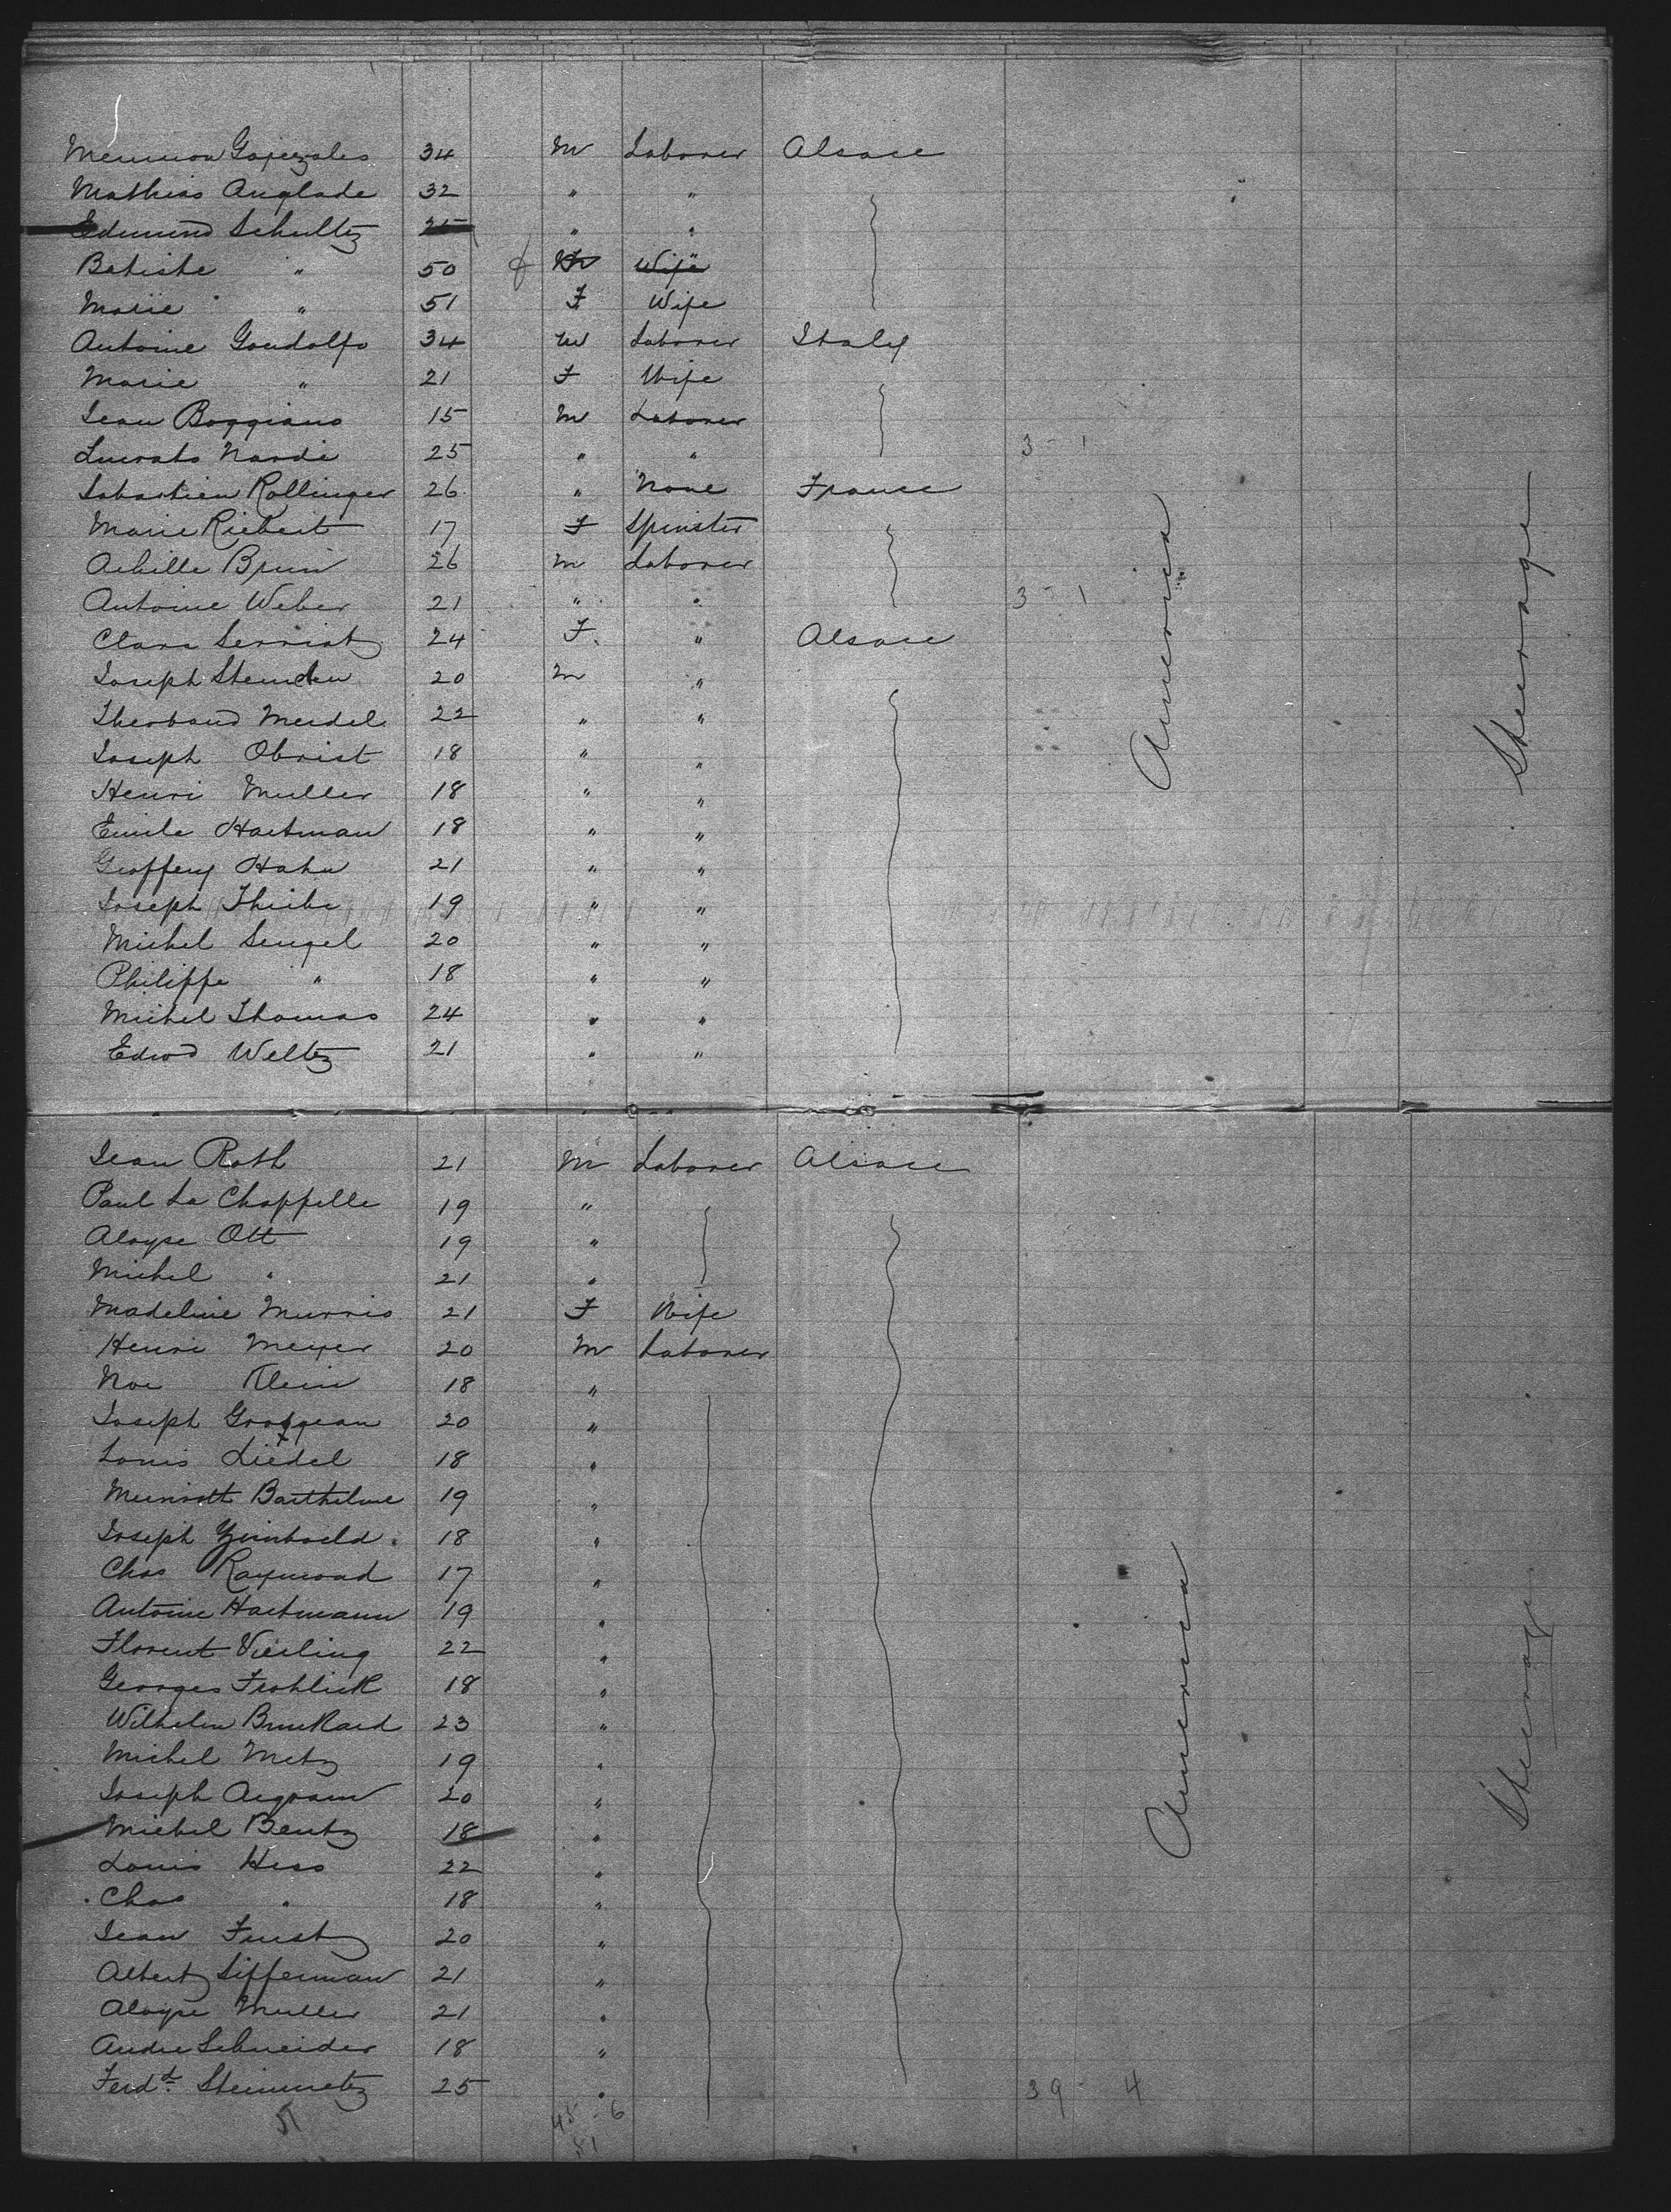 34 M Laborer Alsace
Mathias Anglade 32 " "
Edmund Schultz 25 " "
Batiste " 50 M Wife
Marie " 51 F Wife
Antoine Gandolfo 34 M Laborer Italy
Marie " 21 F Wife
Jean Boggiano 15 M Laborer
Nardi 25 " " 3 - 1
Sabastien Rollinger 26 " None France
Marie Riebeit 17 F Spinster
Achille Brun 26 M Laborer
Antoine Weber 21 " " 3 - 1
Clara 24 F. " Alsace
Joseph 20 M "
Meidel 22 " "
Joseph Obrist 18 " "
Henri Muller 18 " "
Emile Hartman 18 " "
Geoffery Hahn 21 " "
Joseph 19 " "
Michel Sengel 20 " "
Philippe " 18 " "
Michel Thomas 24 " "
Edwd Weltz 21 " "
America
Steerage
Jean Roth 21 M Laborer Alsace
Paul La Chappelle 19 "
Aloyse Ott 19 "
Michel " 21 "
Madeline Murris 21 F Wife
Henri Meyer 20 M Laborer
Noe Klein 18 "
Joseph Grosjean 20 "
Louis Liedel 18 "
Barthelme 19 "
Joseph 18 "
Chas Raymond 17 "
Antoine Hartmann 19 "
Florent Vierling 22 "
Georges Frohlick 18 "
Wilhelm Burkard 23 "
Michel Metz 19 "
Joseph 20 "
Michel Bentz 18 "
Louis Hess 22 "
Chas " 18 "
Jean Furst 20 "
Albert Sifferman 21 "
Aloyse Muller 21 "
Andre Schneider 18 "
Ferdt. Steinmetz 25 " 39 - 4
America
Steerage
51 45 - 6
51